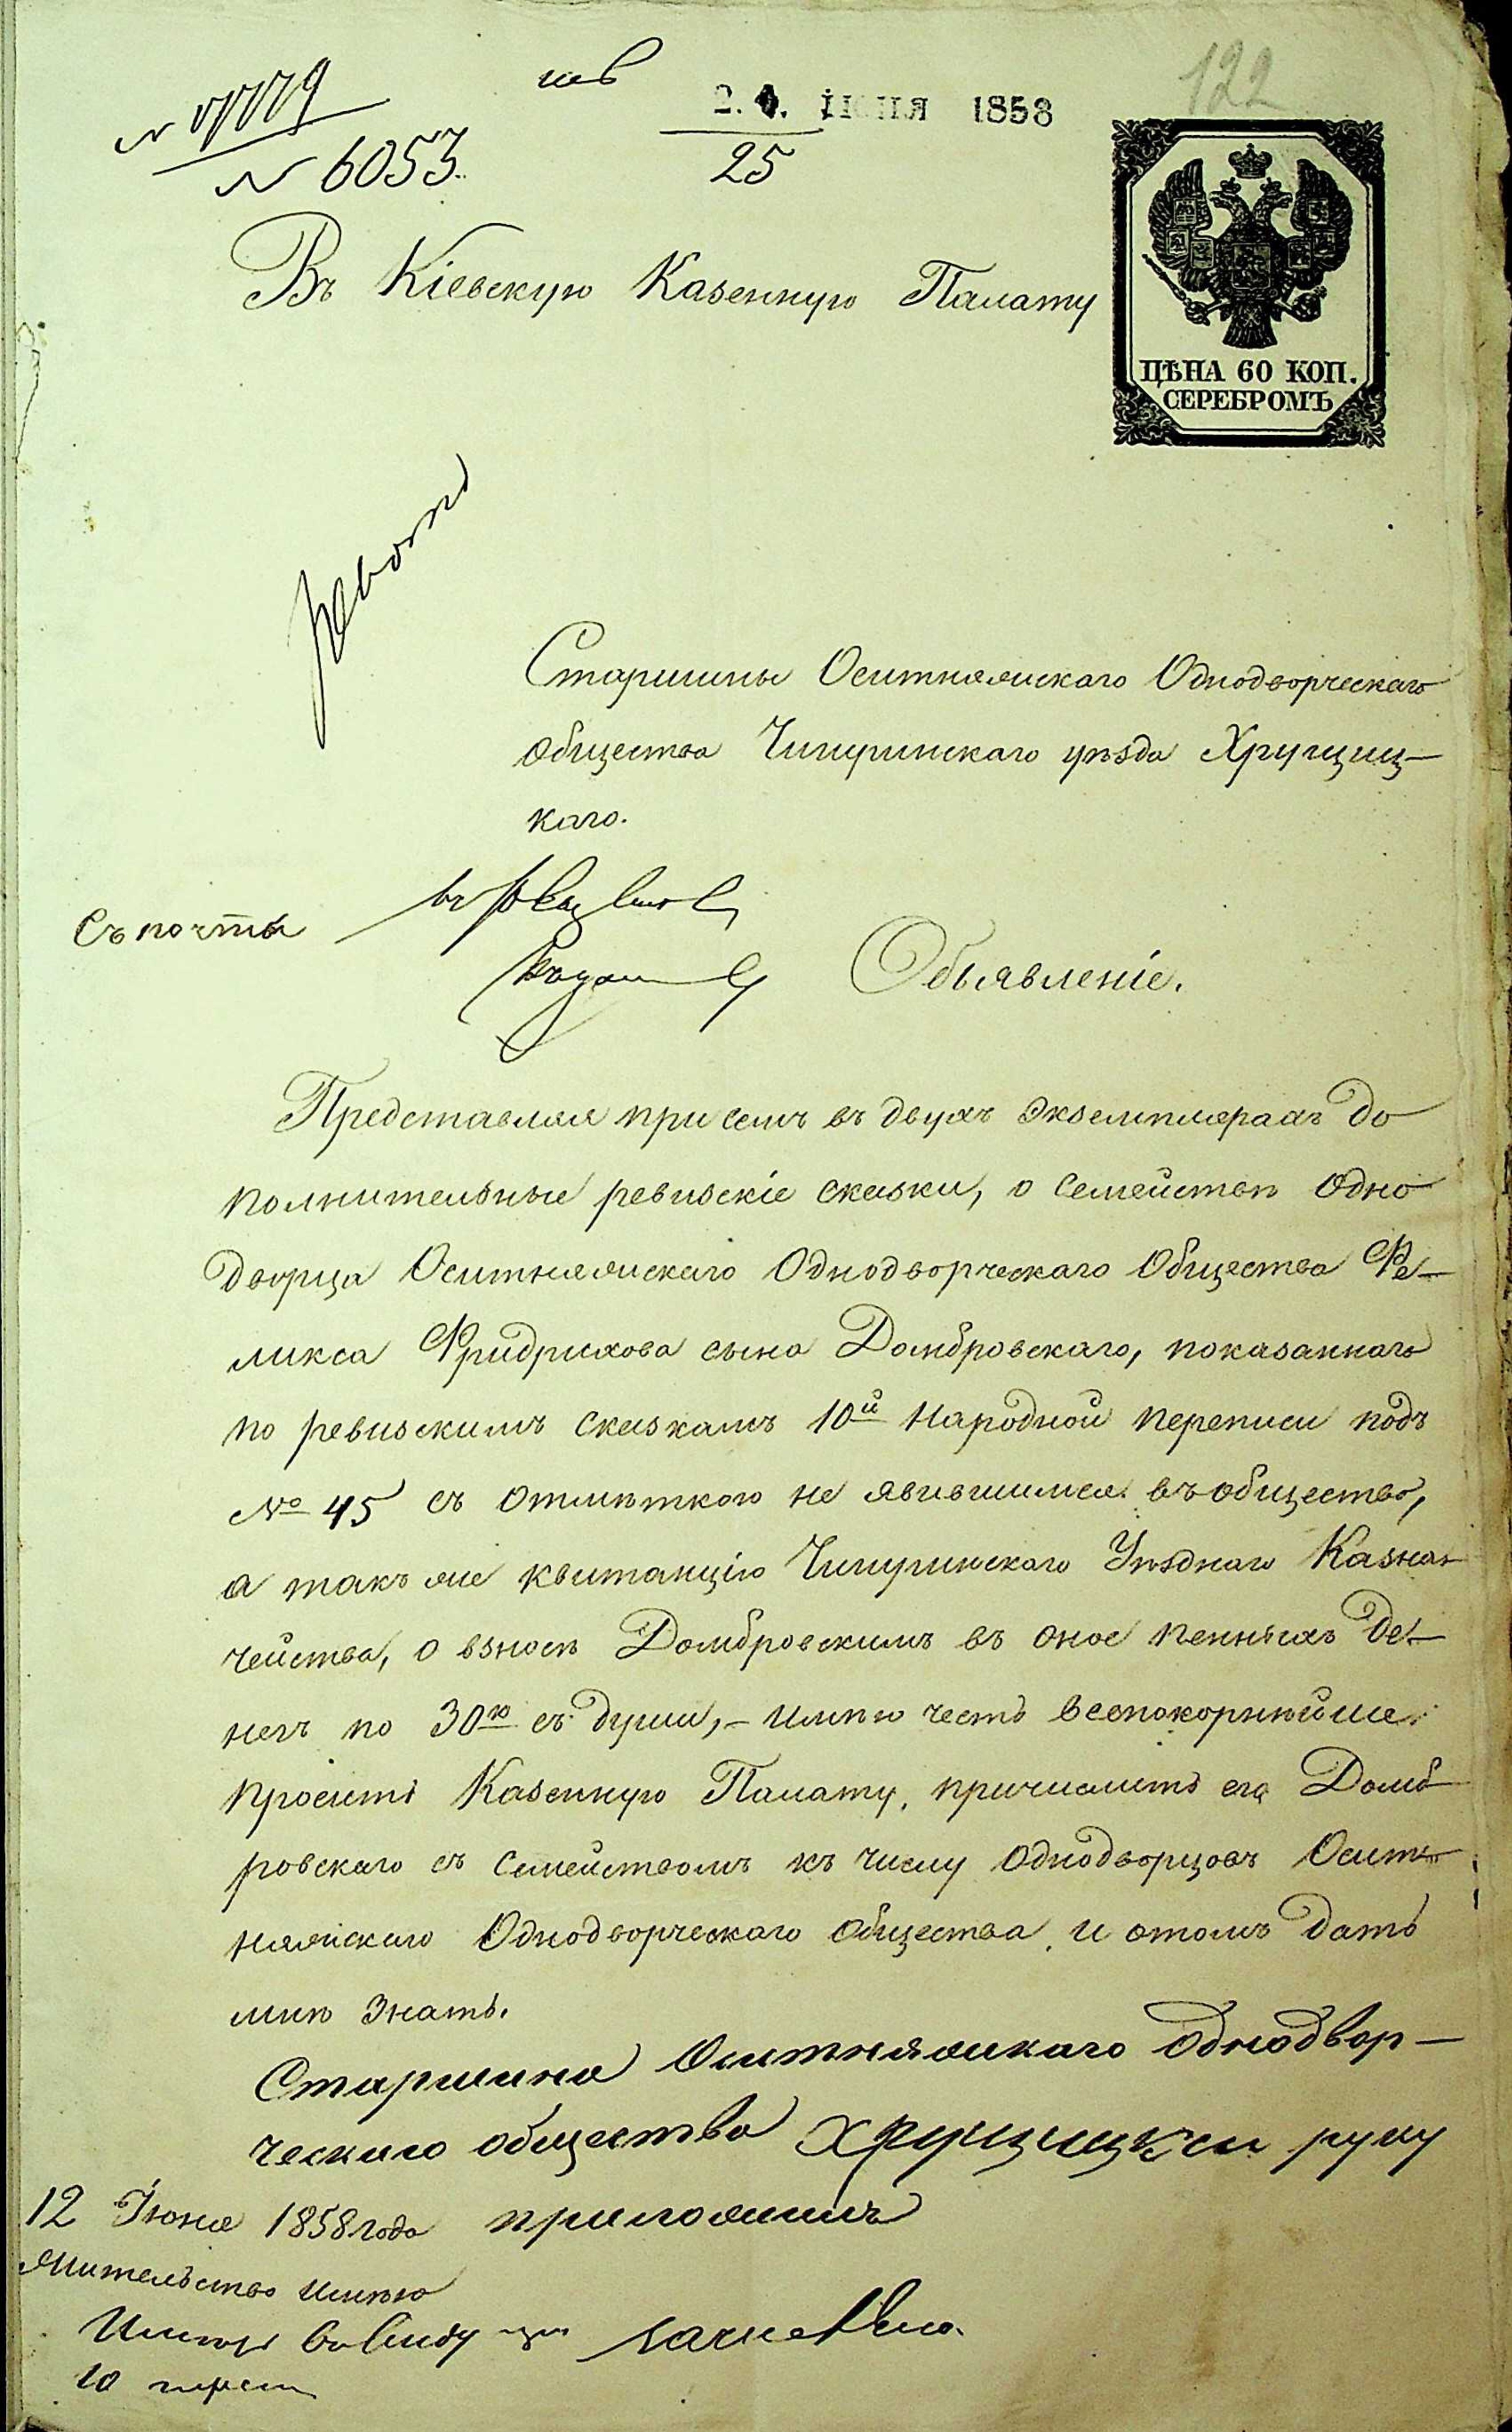 122
№ 6053
ІЮНЯ 1858
25
Въ Кіевскую Казенную Палату
ЦѢНА 60 КОП.
СЕРЕБРОМЪ
Старшины Оситняжскаго Однодворческаго
общества Чигиринскаго уѣзда Хрущиц-
каго.
Съ почты
Объявленіе.
Представляя при семъ въ двухъ экземплярахъ до
полнительные ревизскіе сказки, о семействѣ одно
дворца Оситняжскаго Однодворческаго Общества Фе-
ликса Фридрихова сына Домбровскаго, показаннаго
по ревизскимъ сказкамъ 10й народной переписи подъ
№ 45 съ отмѣткою не явившимся въ общество,
а такъ же квитанцію Чигиринскаго Уѣзднаго Казна-
чейства, о взносѣ Домбровскимъ въ оное пенныхъ де-
негъ по 30ю съ души,- имѣю честь всепокорнѣйше
просить Казенную Палату, причислить его Домб
ровскаго съ семействомъ къ числу однодворцовъ Осит-
няжскаго Однодворческаго общества, и отомъ дать
мнѣ знать.
Старшина Оситняжскаго однодвор-
ческаго общества Хрущицкій руку
12 Іюня 1858 года приложилъ
Жительство имѣю